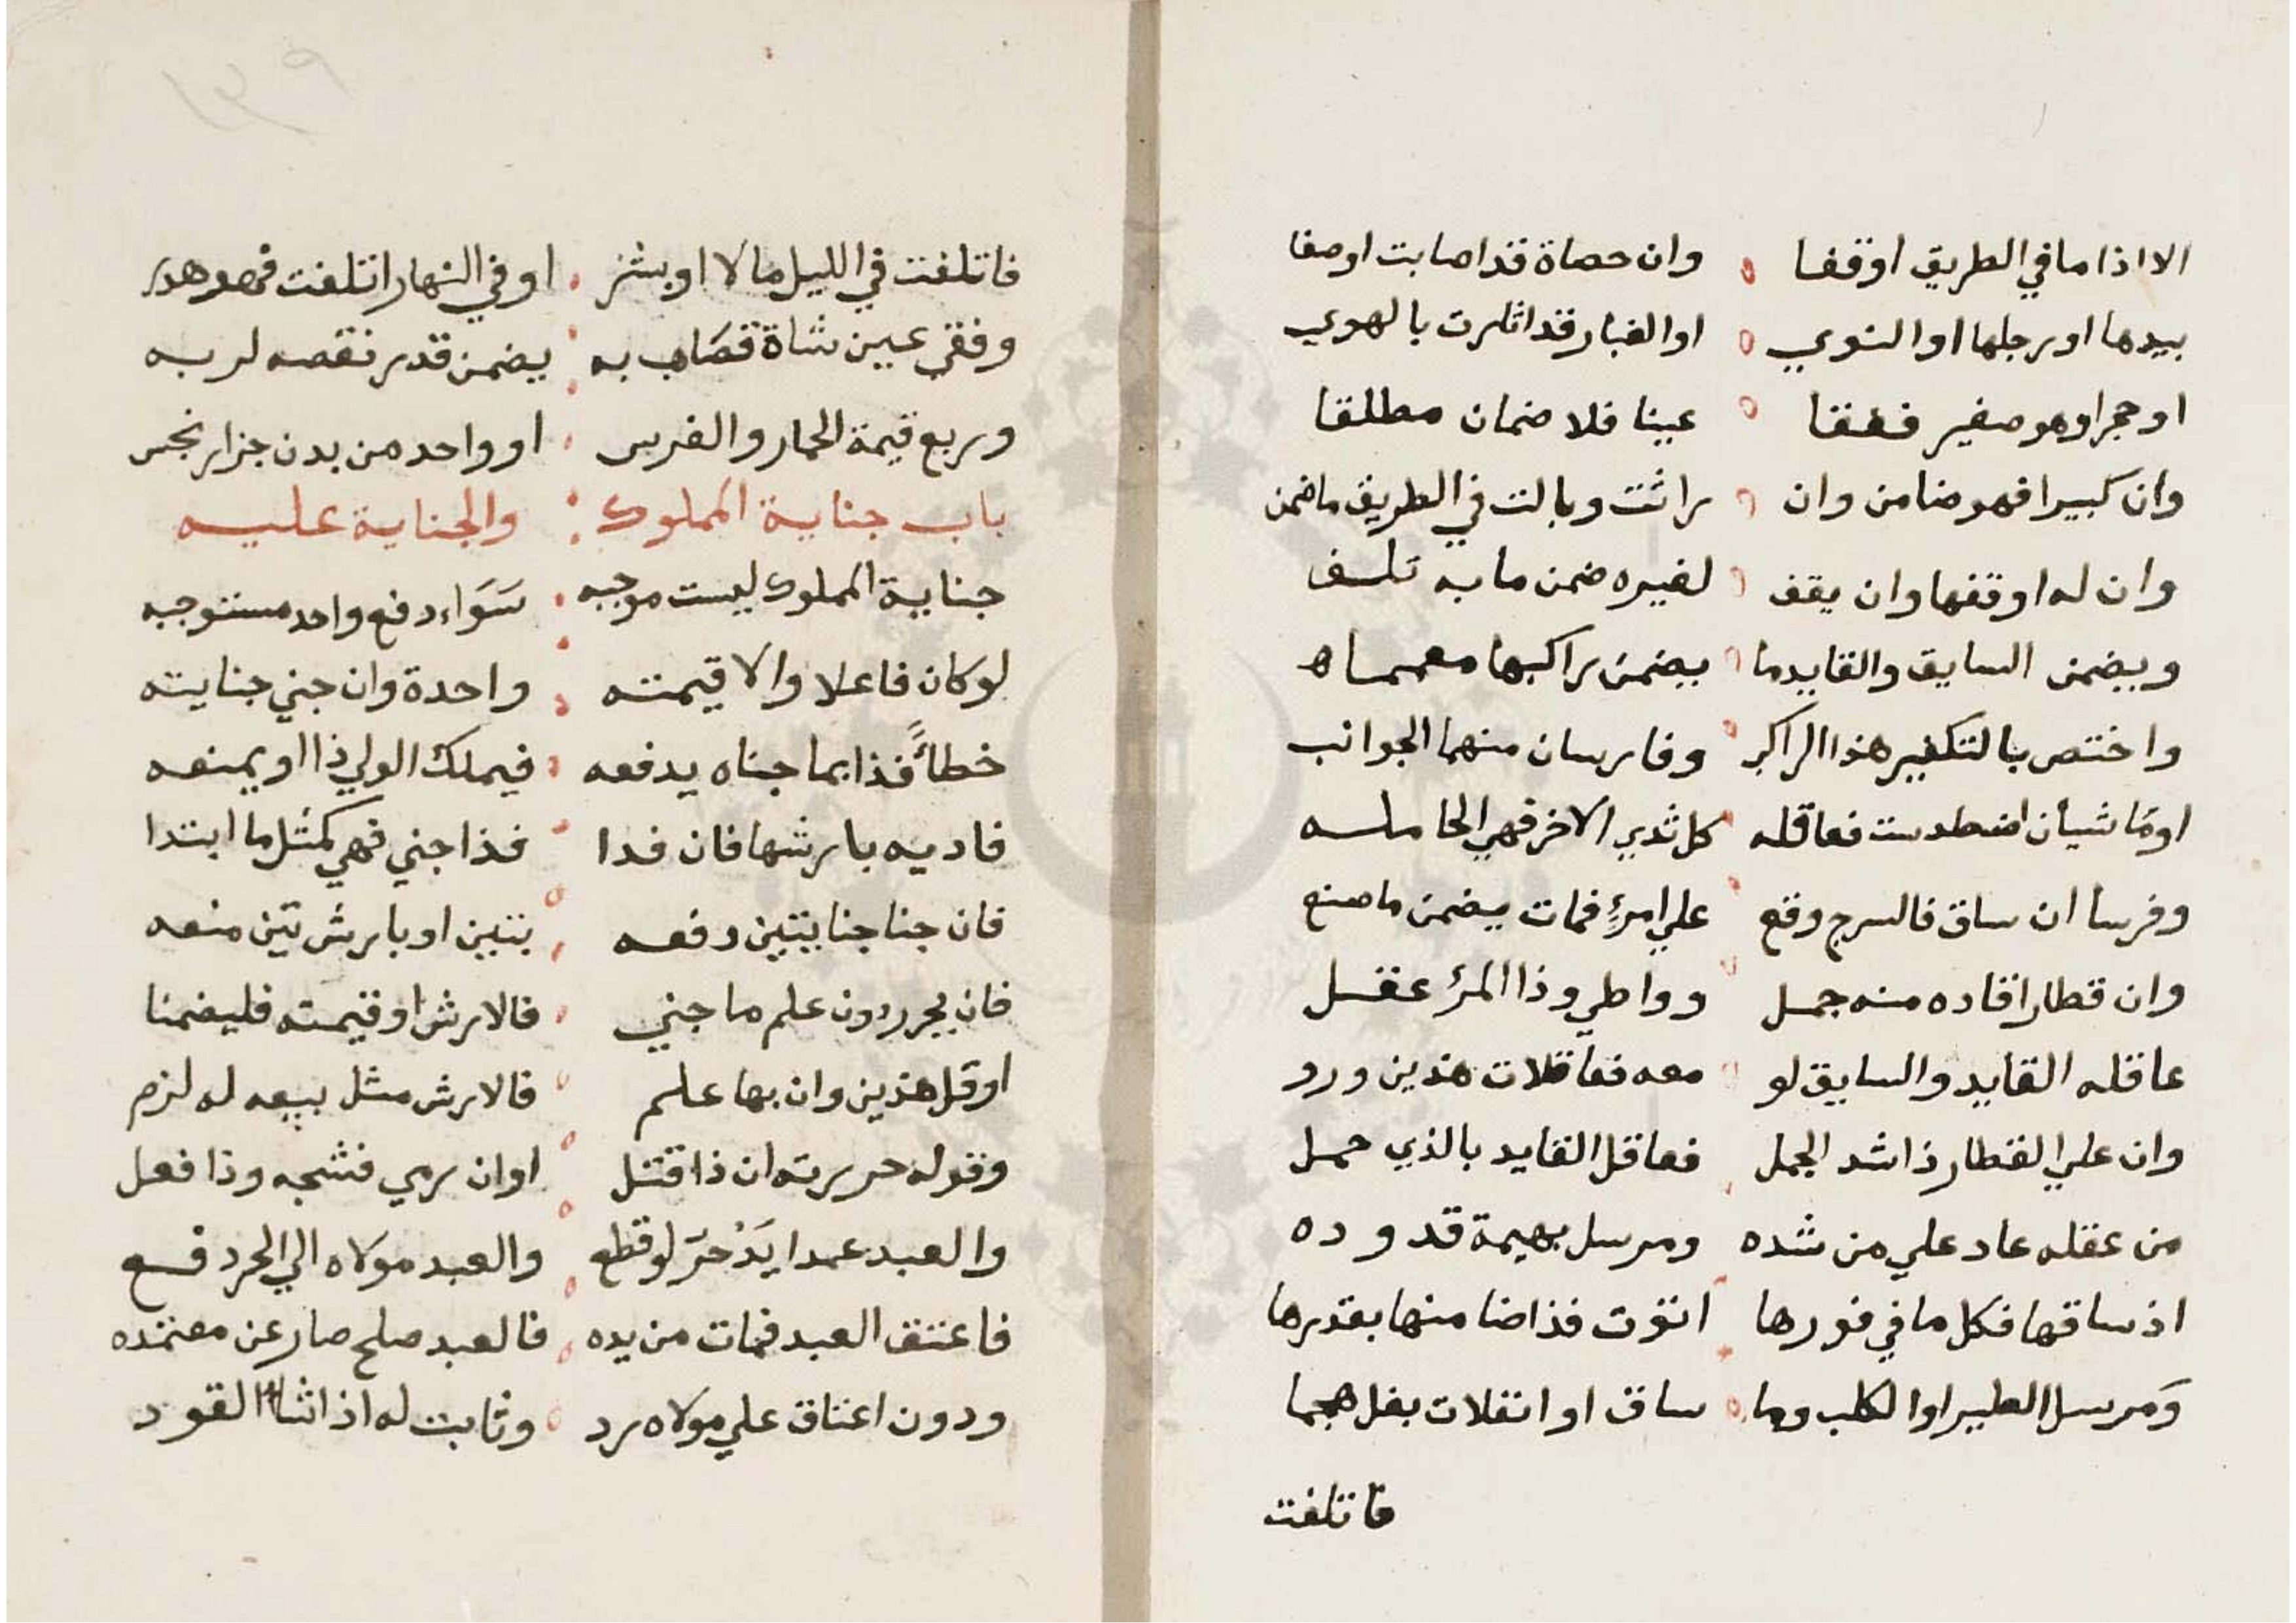 الا اذا ما في الطريق اوقفا وان حصاة قد اصابت او صفا
بيدها او رجلها او النوي او الغبار قد اثارت بالهوي
او حجرا وهو صغير ففقا عينا فلا ضمان مطلقا
وان كبيرا فهو ضامن وان راثت وبالت في الطريق ما ضمن
وان له اوقفها وان يقف لغيره ضمن ما به تلف
ويضمن السايق والقايد ما يضمن راكبها معهما ه
واختص بالتكفير هذا الراكب وفارسان منهما الجوانب
او ماشيان اضطدمت فعاقله كل ثدي الاخر فهي الحامله
وفرسا ان ساق فالسرج وقع علي امرء فمات يضمن ما صنع
وان قطارا قاده منه جمل وواطي وذا المرء عقل
عاقله القايد والسايق لو معه فعاقلات هذين ورو
وان علي القطار ذا شد الجمل فعاقل القايد بالذي حمل
من عقله عاد علي من شده ومرسل بهيمة قد وده
اذ ساقها فكل ما في فورها اتوت فذا ضامنها بقدرها
ومرسل الطير او الكلب وما ساق او انفلات بغل هجما
فاتلفت
فاتلفت في الليل مالا او بشر او في النهار اتلفت فهو هدر
وفقي عين شاة قصاب به يضمن قدر نقصه لربه
وربع قيمة الحمار والفرس او واحد من بدن جزار نجس
باب جناية المملوك والجناية عليه
جناية المملوك ليست موجبه سَوَاء دفع واحد مستوجبه
لو كان فاعلا والا قيمته واحدة وان جني جنايته
خطاً فذا بما جناه يدفعه فيملك الولي ذا او يمنعه
فاديه بارشها فان فدا فذا جني فهي كمثل ما ابتدا
فان جنا جنايتين دفعه بتين او بارش تين منعه
فان يحرر دون علم ما جني فالارش او قيمته فليضمنا
او قل هذين وان بها علم فالارش مثل بيعه له لزم
وقوله حريرته ان ذا قتل او ان رمي فشجه وذا فعل
والعبد عمدا يَدْ حرّ لو قطع والعبد مولاه الي الحر دفع
فاعتق العبد فمات من يده فالعبد صلح صار عن معتمده
ودون اعتاق علي مولاه رد وثابت له اذا شاء القود